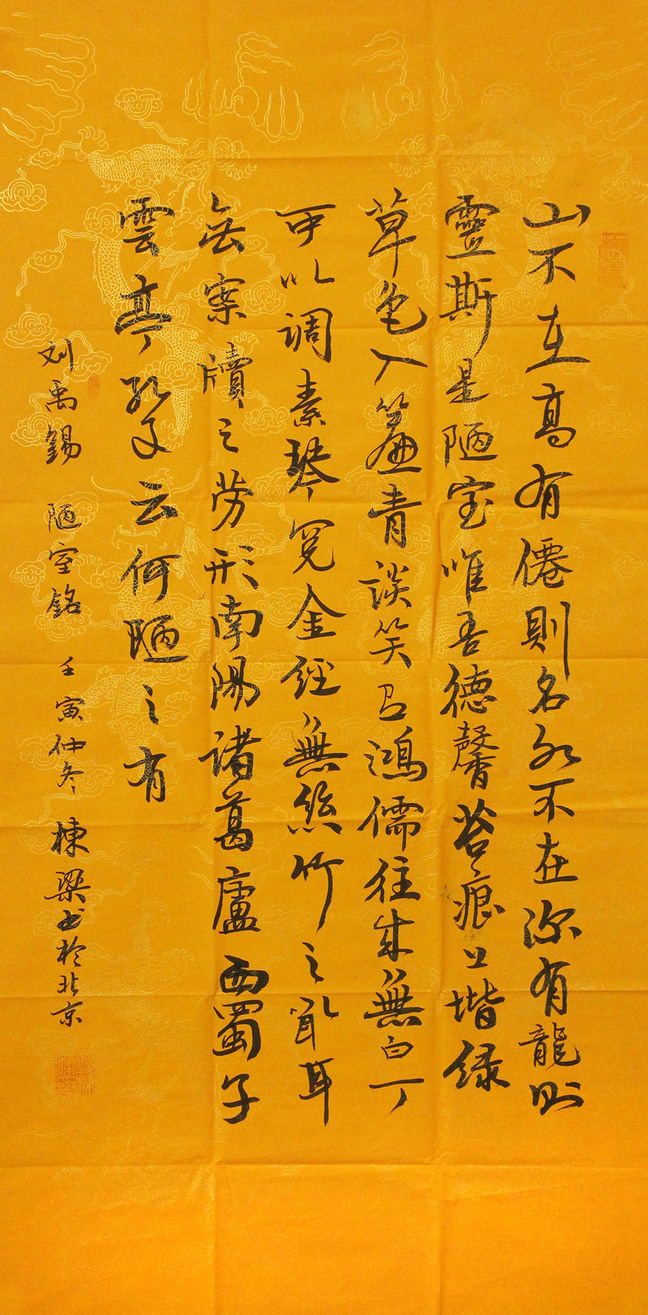 山不在高有僊則名水不在深有龍則
靈斯是陋室唯吾德馨苔痕上堦緑
草色入簾青談笑有鴻儒往来無白丁
可以调素琴閲金經無絲竹之亂耳
無案牘之劳形南陽諸葛廬西蜀子
雲亭孔子云何陋之有
刘禹錫 陋室銘 壬寅仲冬 棟梁书於北京